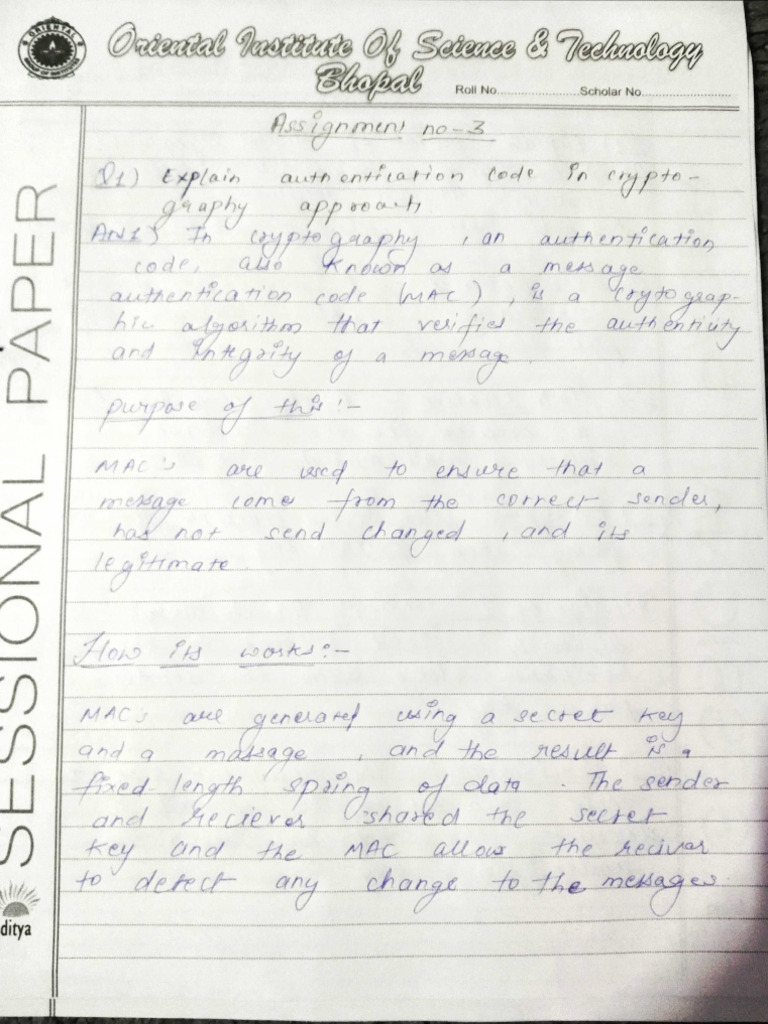 ORIENTAL
Oriental Institute Of Science & Technology
Bhopal
Roll No.......................Scholar No.........................
Assignment no-3
Q1) Explain authentication code in crypto-
graphy approach
ANS) In cryptography , an authentication
code, also known as a message
authentication code (MAC) , is a crytograp-
hic algorithm that verifies the authenticity
and integrity of a message .
purpose of this :-
MAC's are used to ensure that a
message come from the correct sender,
has not send changed , and its
legitimate .
How its works :-
MACs are generated using a secret key
and a massage , and the result is a
fixed-length spring of data . The sender
and reciever shared the secret
key and the MAC allow the reciver
to detect any change to the messages.
SESSIONAL PAPER
ditya